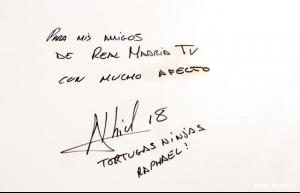 PARA MIS AMIGOS
DE REAL MADRID TV
CON MUCHO AFECTO
18
TORTUGAS NINJAS
RAPHAEL!